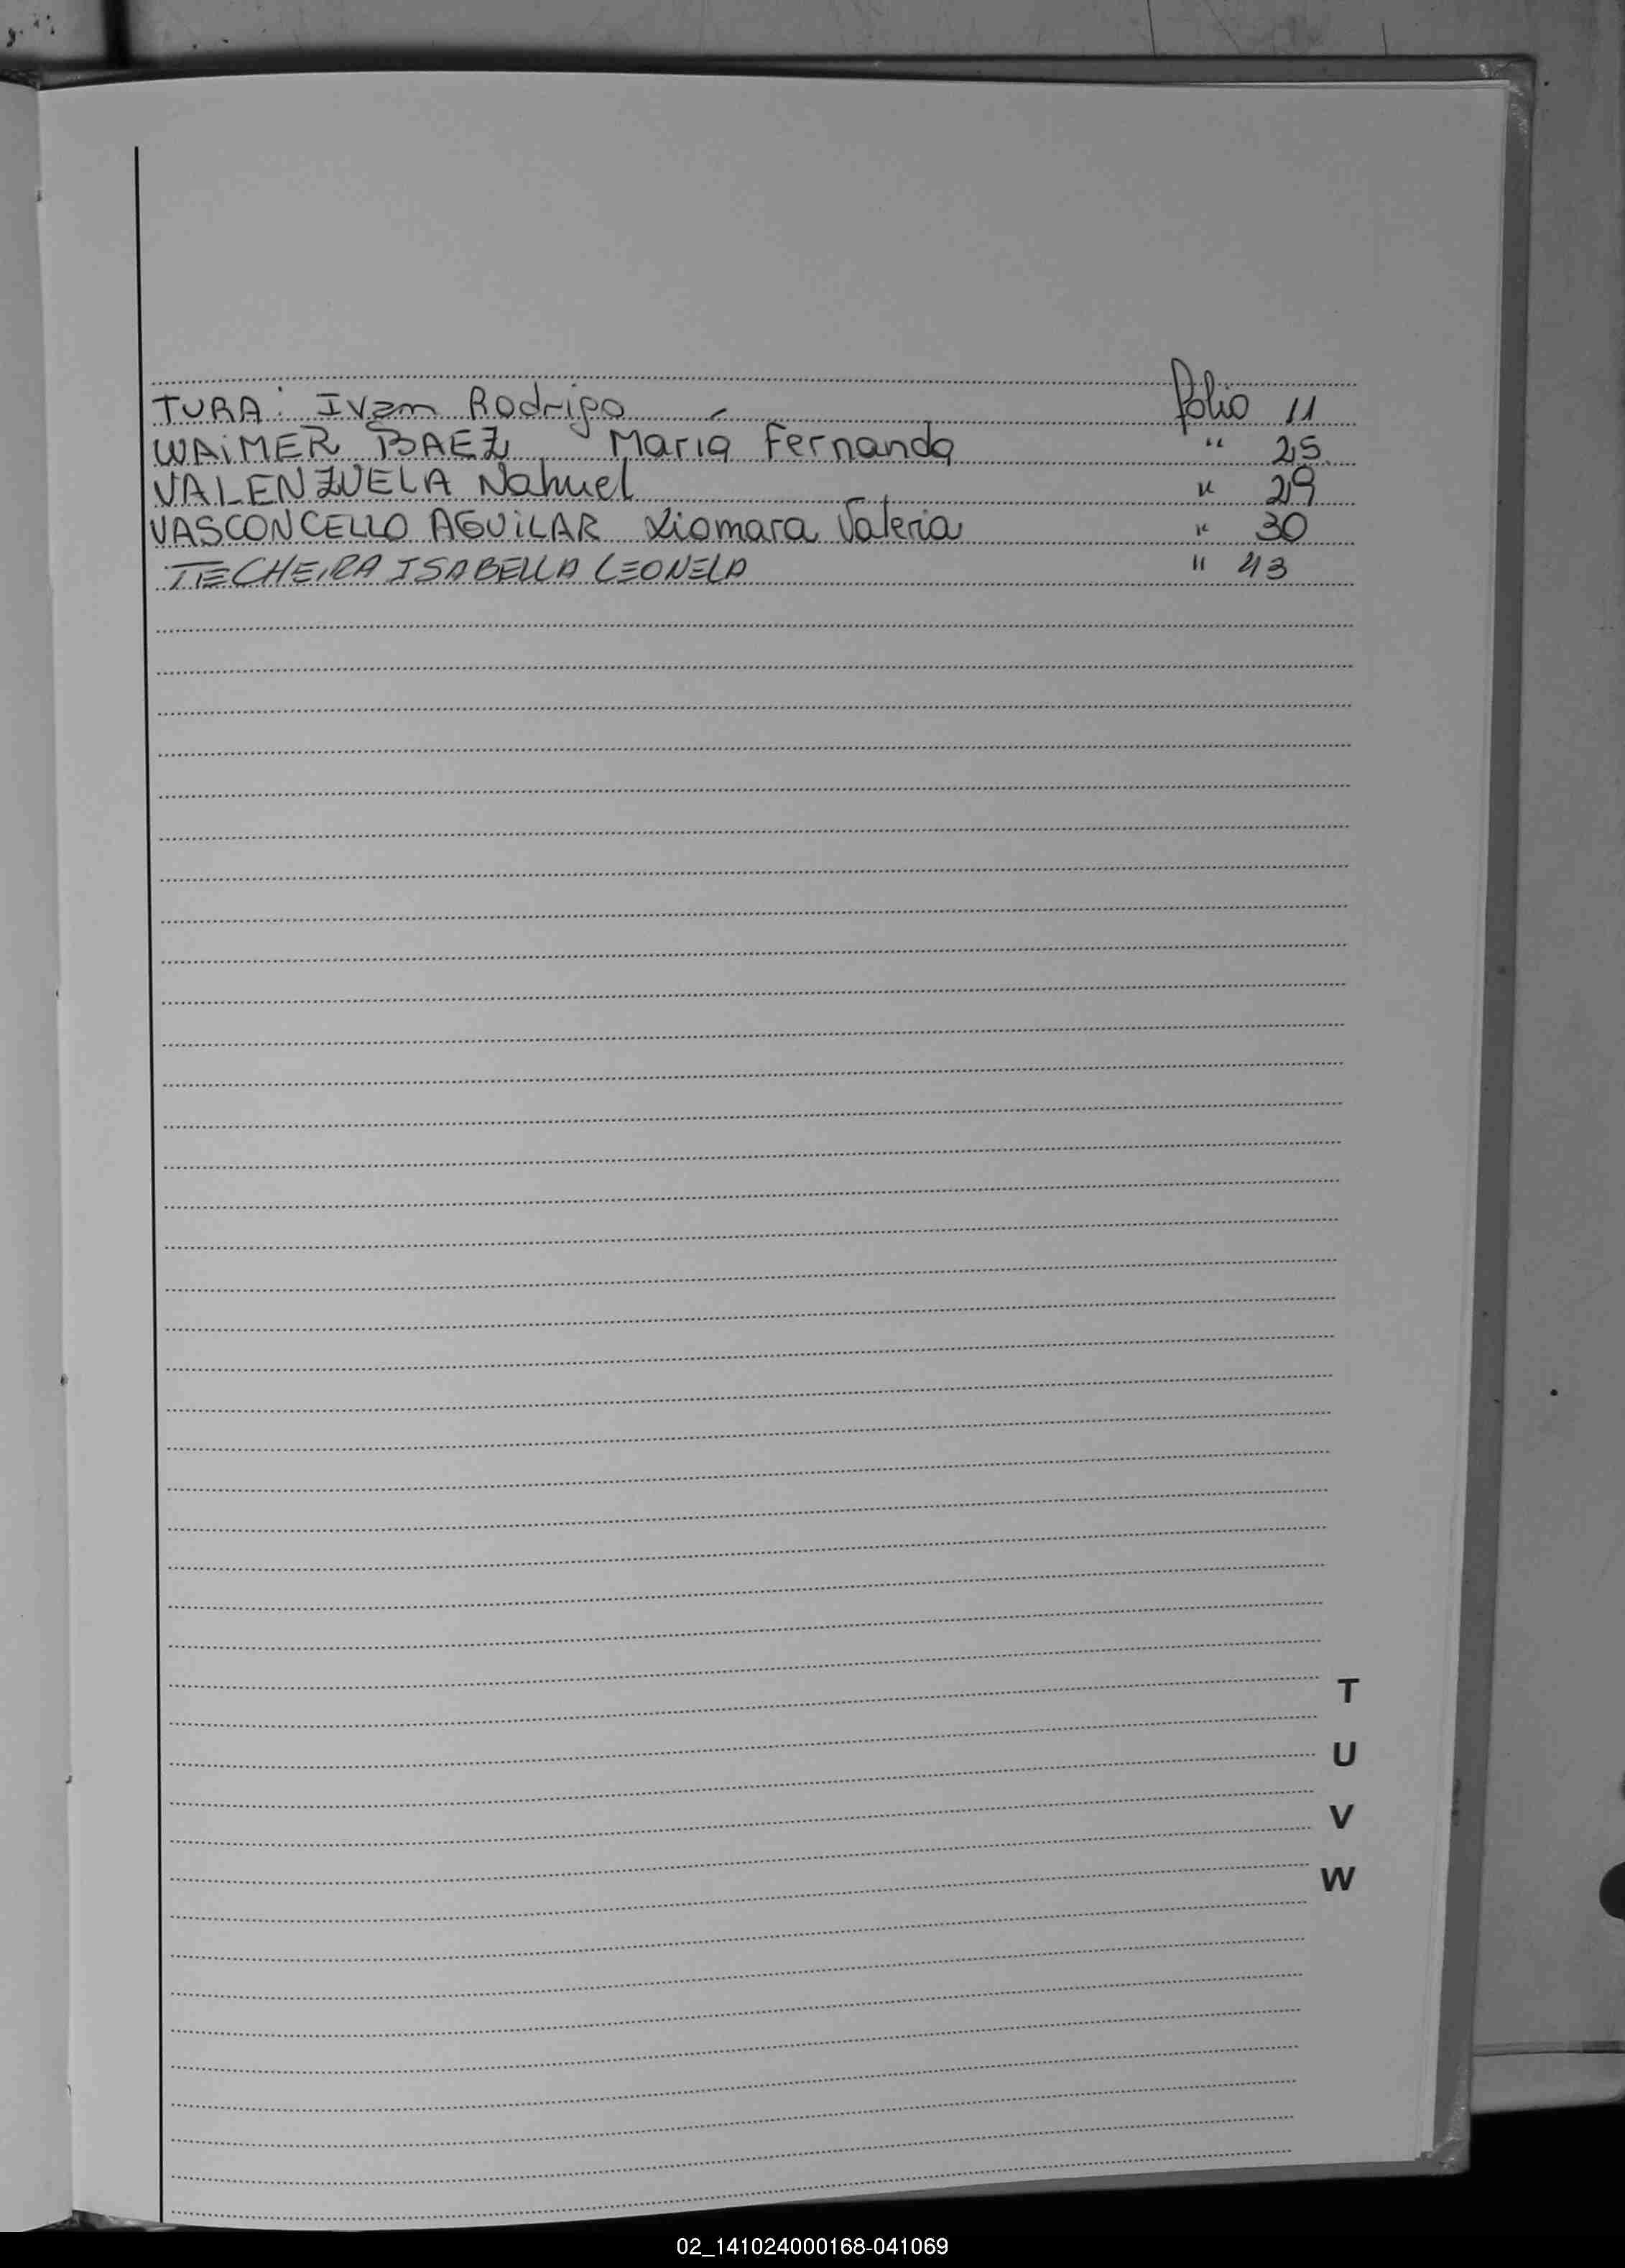 TURA: Ivan Rodrigo folio 11
WAiMER BAEZ Maria Fernanda " 25
VALENZUELA Nahuel " 29
VASCONCELLO AGUiLAR Xiomara Valeria " 30
TECHEIRA ISABELLA LEONELA " 43
T
U
V
W
02_141024000168-041069